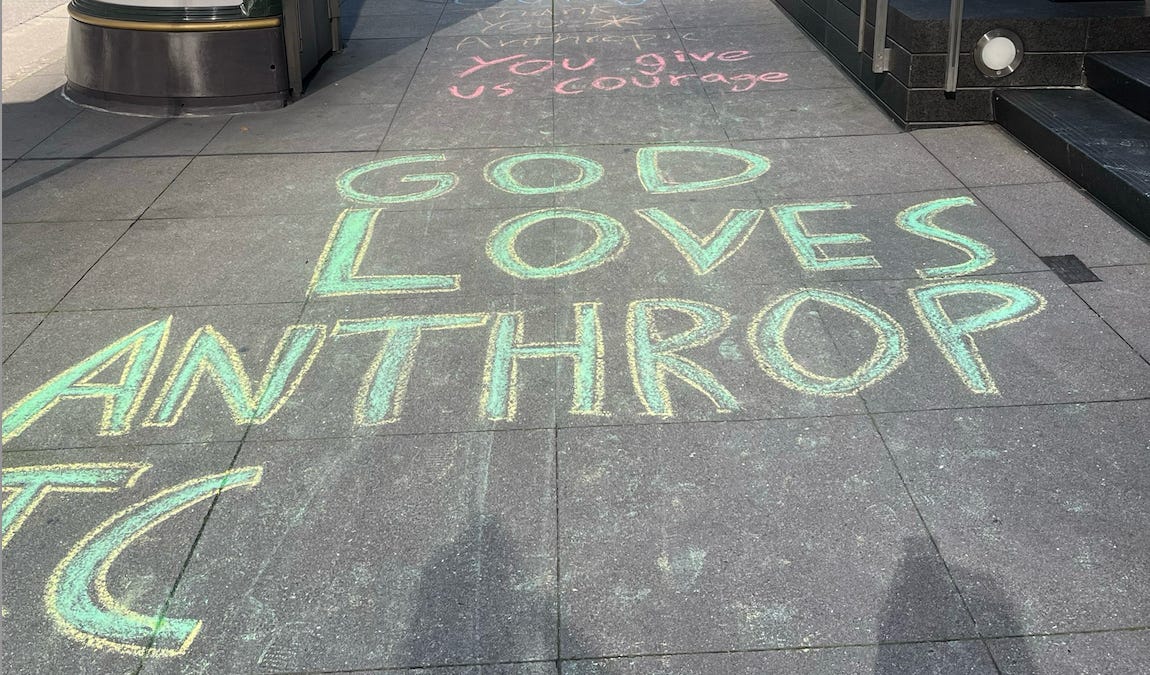 Thank
You
Anthropic
You give
us courage
GOD
LOVES
ANTHROP
IC